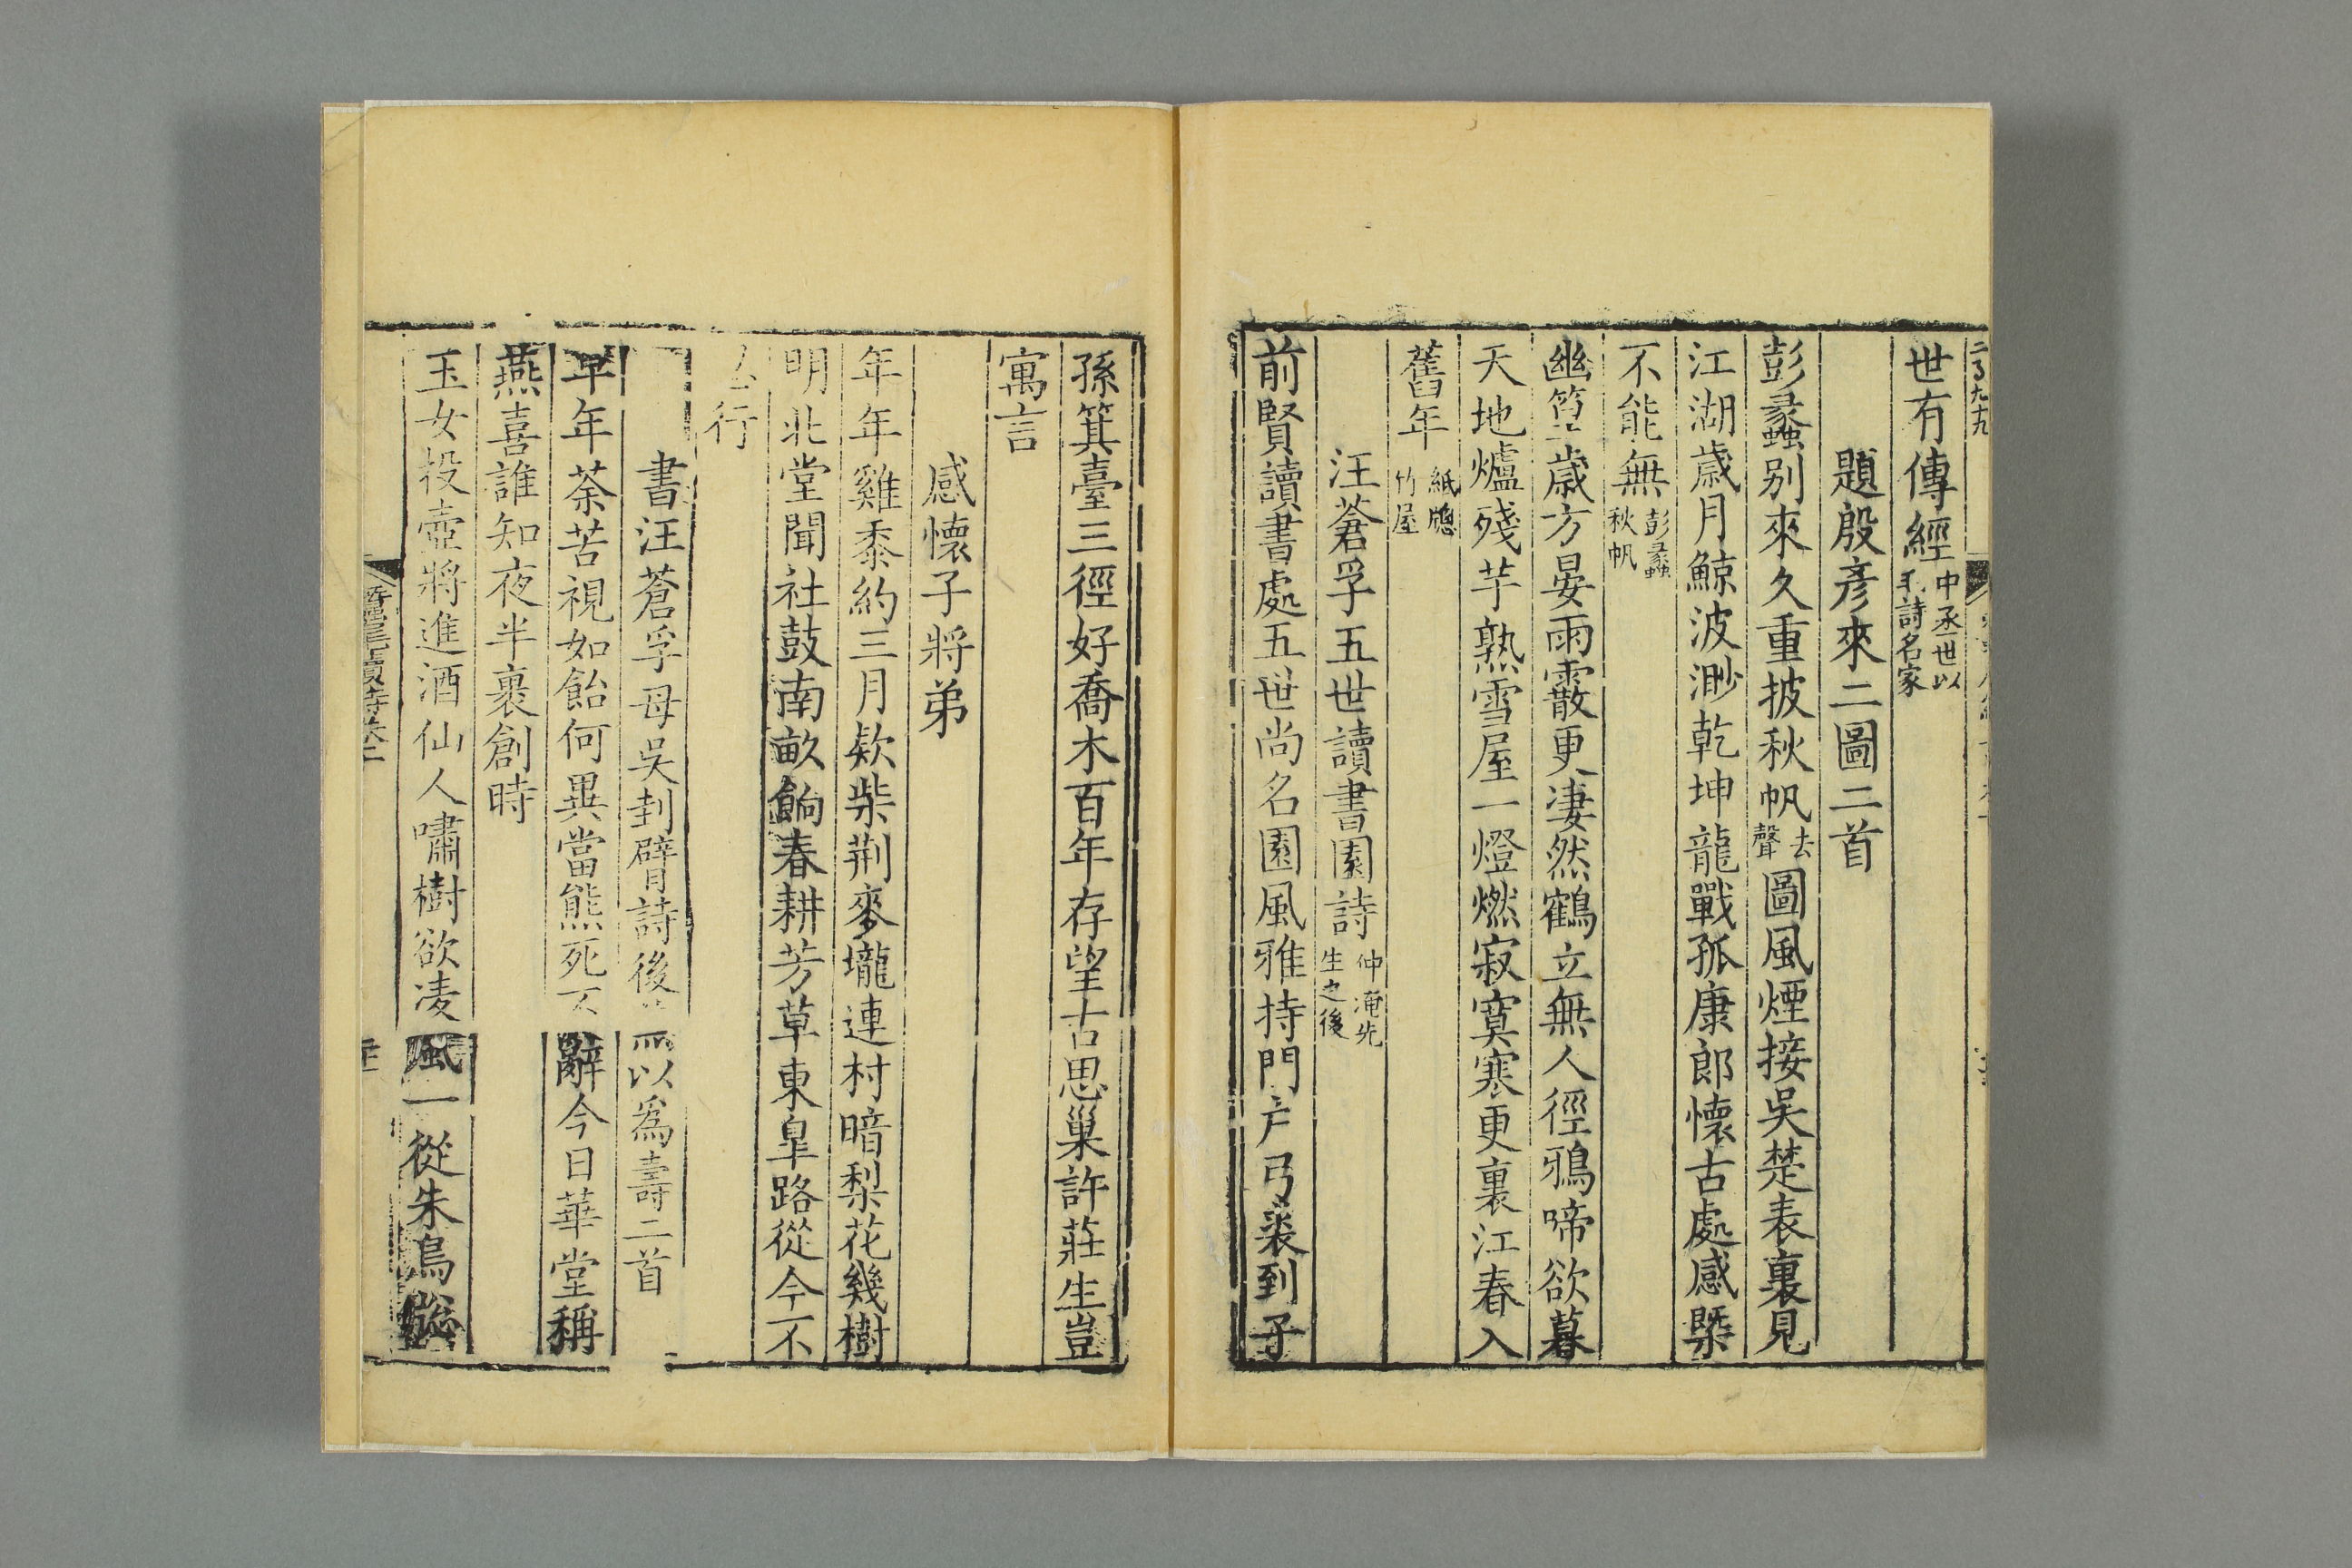 世有傳經中丞世以毛詩名家
題殷彥來二圖二首
彭蠡别來久重披秋帆去聲圖風煙接吳楚表裏見
江湖歲月鯨波渺乾坤龍戰孤康郎懷古處感槩
不能無彭蠡秋帆
幽篁歲方晏雨霰更凄然鶴立無人徑鴉啼欲暮
天地爐殘芋熟雪屋一燈燃寂寞寒更裏江春入
舊年紙牕竹屋
汪蒼孚五世讀書園詩仲淹先生之後
前賢讀書處五世尚名園風雅持門户弓裘到子
孫箕臺三徑好喬木百年存望古思巢許莊生豈
寓言
感懷子將弟
年年雞黍約三月欵柴荆麥壠連村暗梨花幾樹
明北堂聞社鼓南畝餉春耕芳草東臯路從今不
行
書汪蒼孚母吳刲臂詩後以爲壽二首
早年荼苦視如飴何異當熊死不辭今日華堂稱
燕喜誰知夜半裹創時
玉女投壺將進酒仙人嘯樹欲凌風一從朱鳥
蠶尾續詩卷二